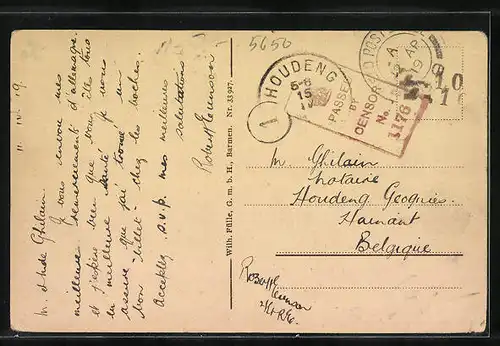 11. IV. 19.
M. et Mde Ghilain.
Je vous envoie mes
meilleurs remerciements d'allemagne.
et j'espère bien que vous êtes tous
en meilleure santé. je vous
assure que j'ai trouvé un
bon billet chez les boches.
Acceptez s.v.p. mes meilleures
salutations
Robert
Wilh. Fülle, G. m. b. H., Barmen. Nr. 33927.
5650
HOUDENG
6-8
15
1
PASSED
BY
CENSOR
No.
1176
D POST
A
AP
19
M Ghilain
notaire
Houdeng Goegnies.
Hainaut
Belgique
Robert